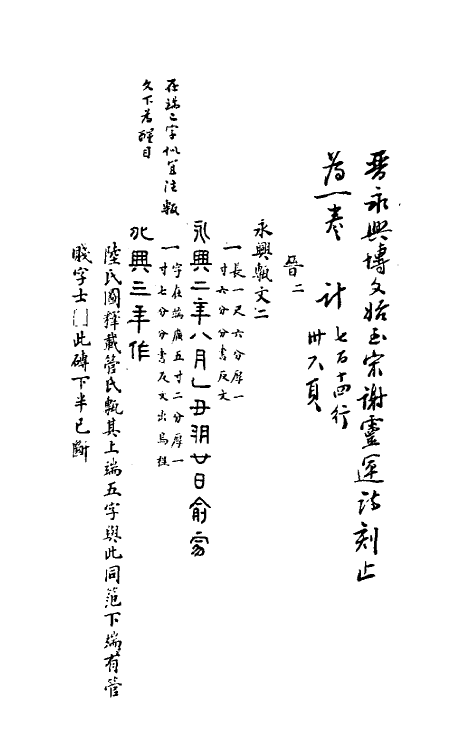 晉永興塼文始至宋謝靈運詩刻止
為一卷　計七百十四行
卅八頁
晉二
永興甎文二
一長一尺六分厚一
寸六分分書反文
永興二年八月乙丑朔廿日俞家
一字在端廣五寸二分厚一
寸七分分書反文出烏程
永興三年作
陸氏國釋載管氏甎其上端五字與此同範下端有管
晐字士此磚下半已斷
在端二字似宜注甎
文下若醒目